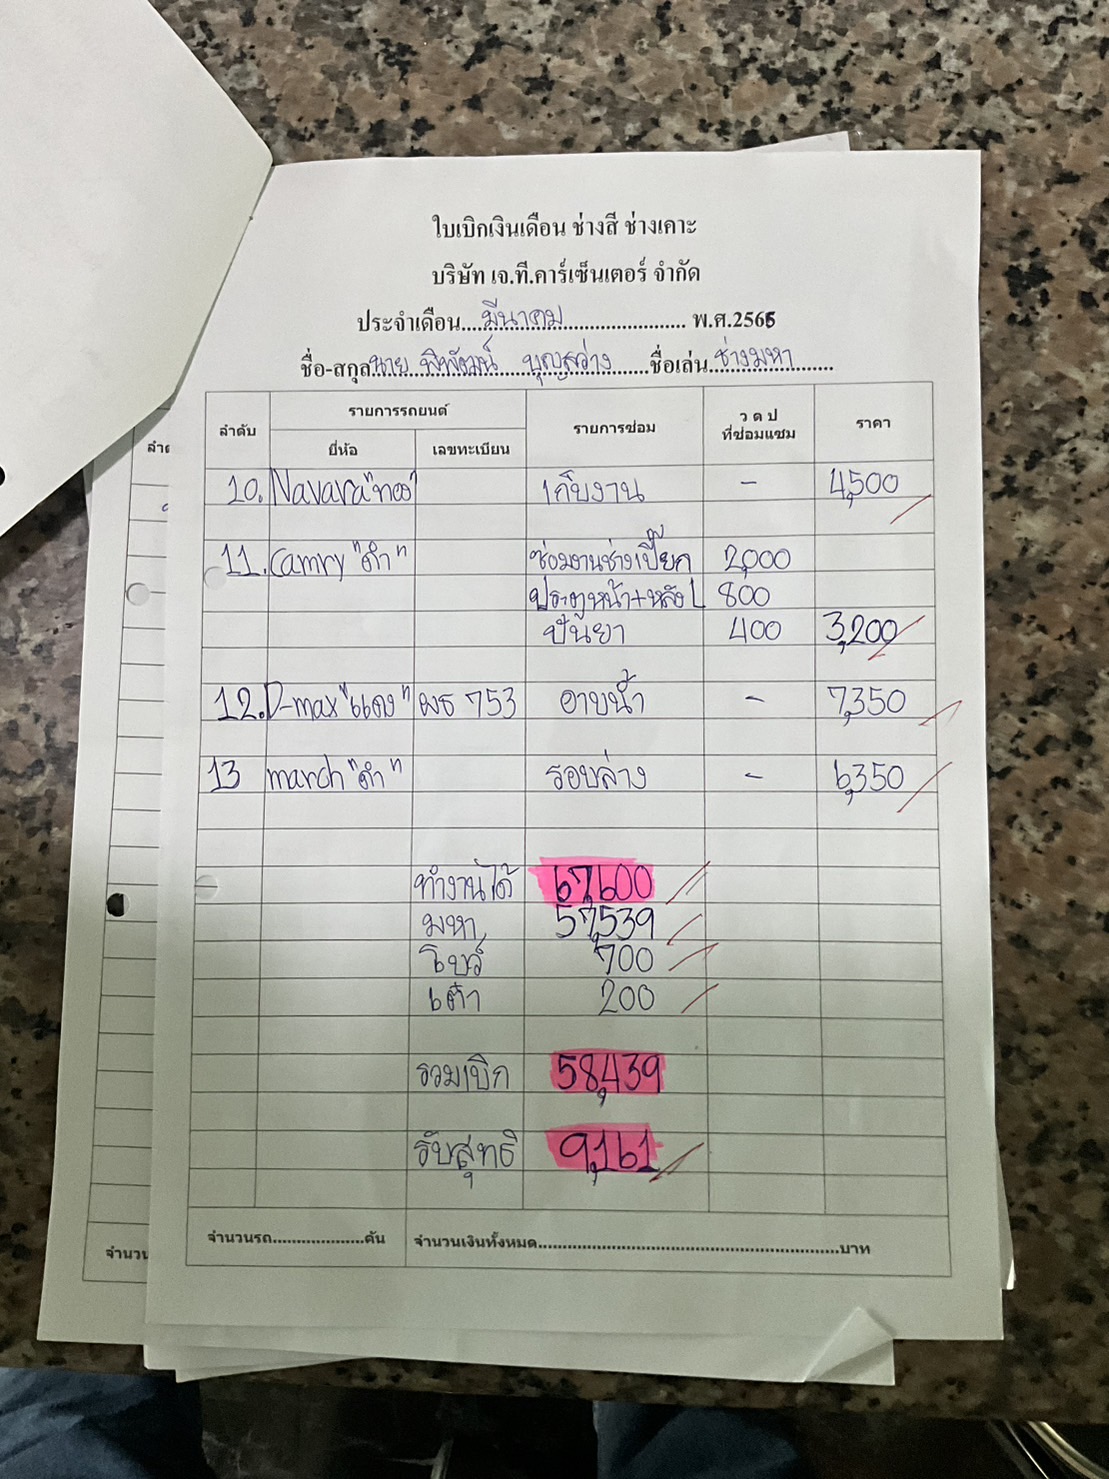 ใบเบิกเงินเดือน ช่างสี ช่างเคาะ
บริษัท เจ.ที.คาร์เซ็นเตอร์ จำกัด
ประจำเดือน....มีนาคม.................... พ.ศ.2566
ชื่อ-สกุล นาย พิพัฒน์ บุญสว่าง ......ชื่อเล่น..ช่างมหา........
ลำดับ รายการรถยนต์ รายการซ่อม ว ด ป ที่ซ่อมแซม ราคา
ยี่ห้อ เลขทะเบียน
10. Navara "ทอง" เก็บงาน - 4,500
11. Camry "ดำ" ซ่อมงานช่างเปี๊ยก 2,000
ประตูหน้า+หลัง L 800
ปั่นยา 400 3,200
12. D-max "แดง" ผธ 753 อาบน้ำ - 7,350
13 march "ดำ" รอบล่าง - 6,350
ทำงานได้ 67,600
มหา 57,539
โบร์ 700
เต๋า 200
รวมเบิก 58,439
รับสุทธิ 9,161
จำนวนรถ....................คัน จำนวนเงินทั้งหมด............................................................บาท
ลำด
จำนวน